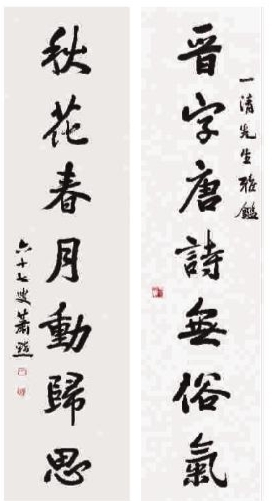 一清先生雅鑑
晋字唐詩無俗氣
秋花春月動歸思
六十七叟蕭